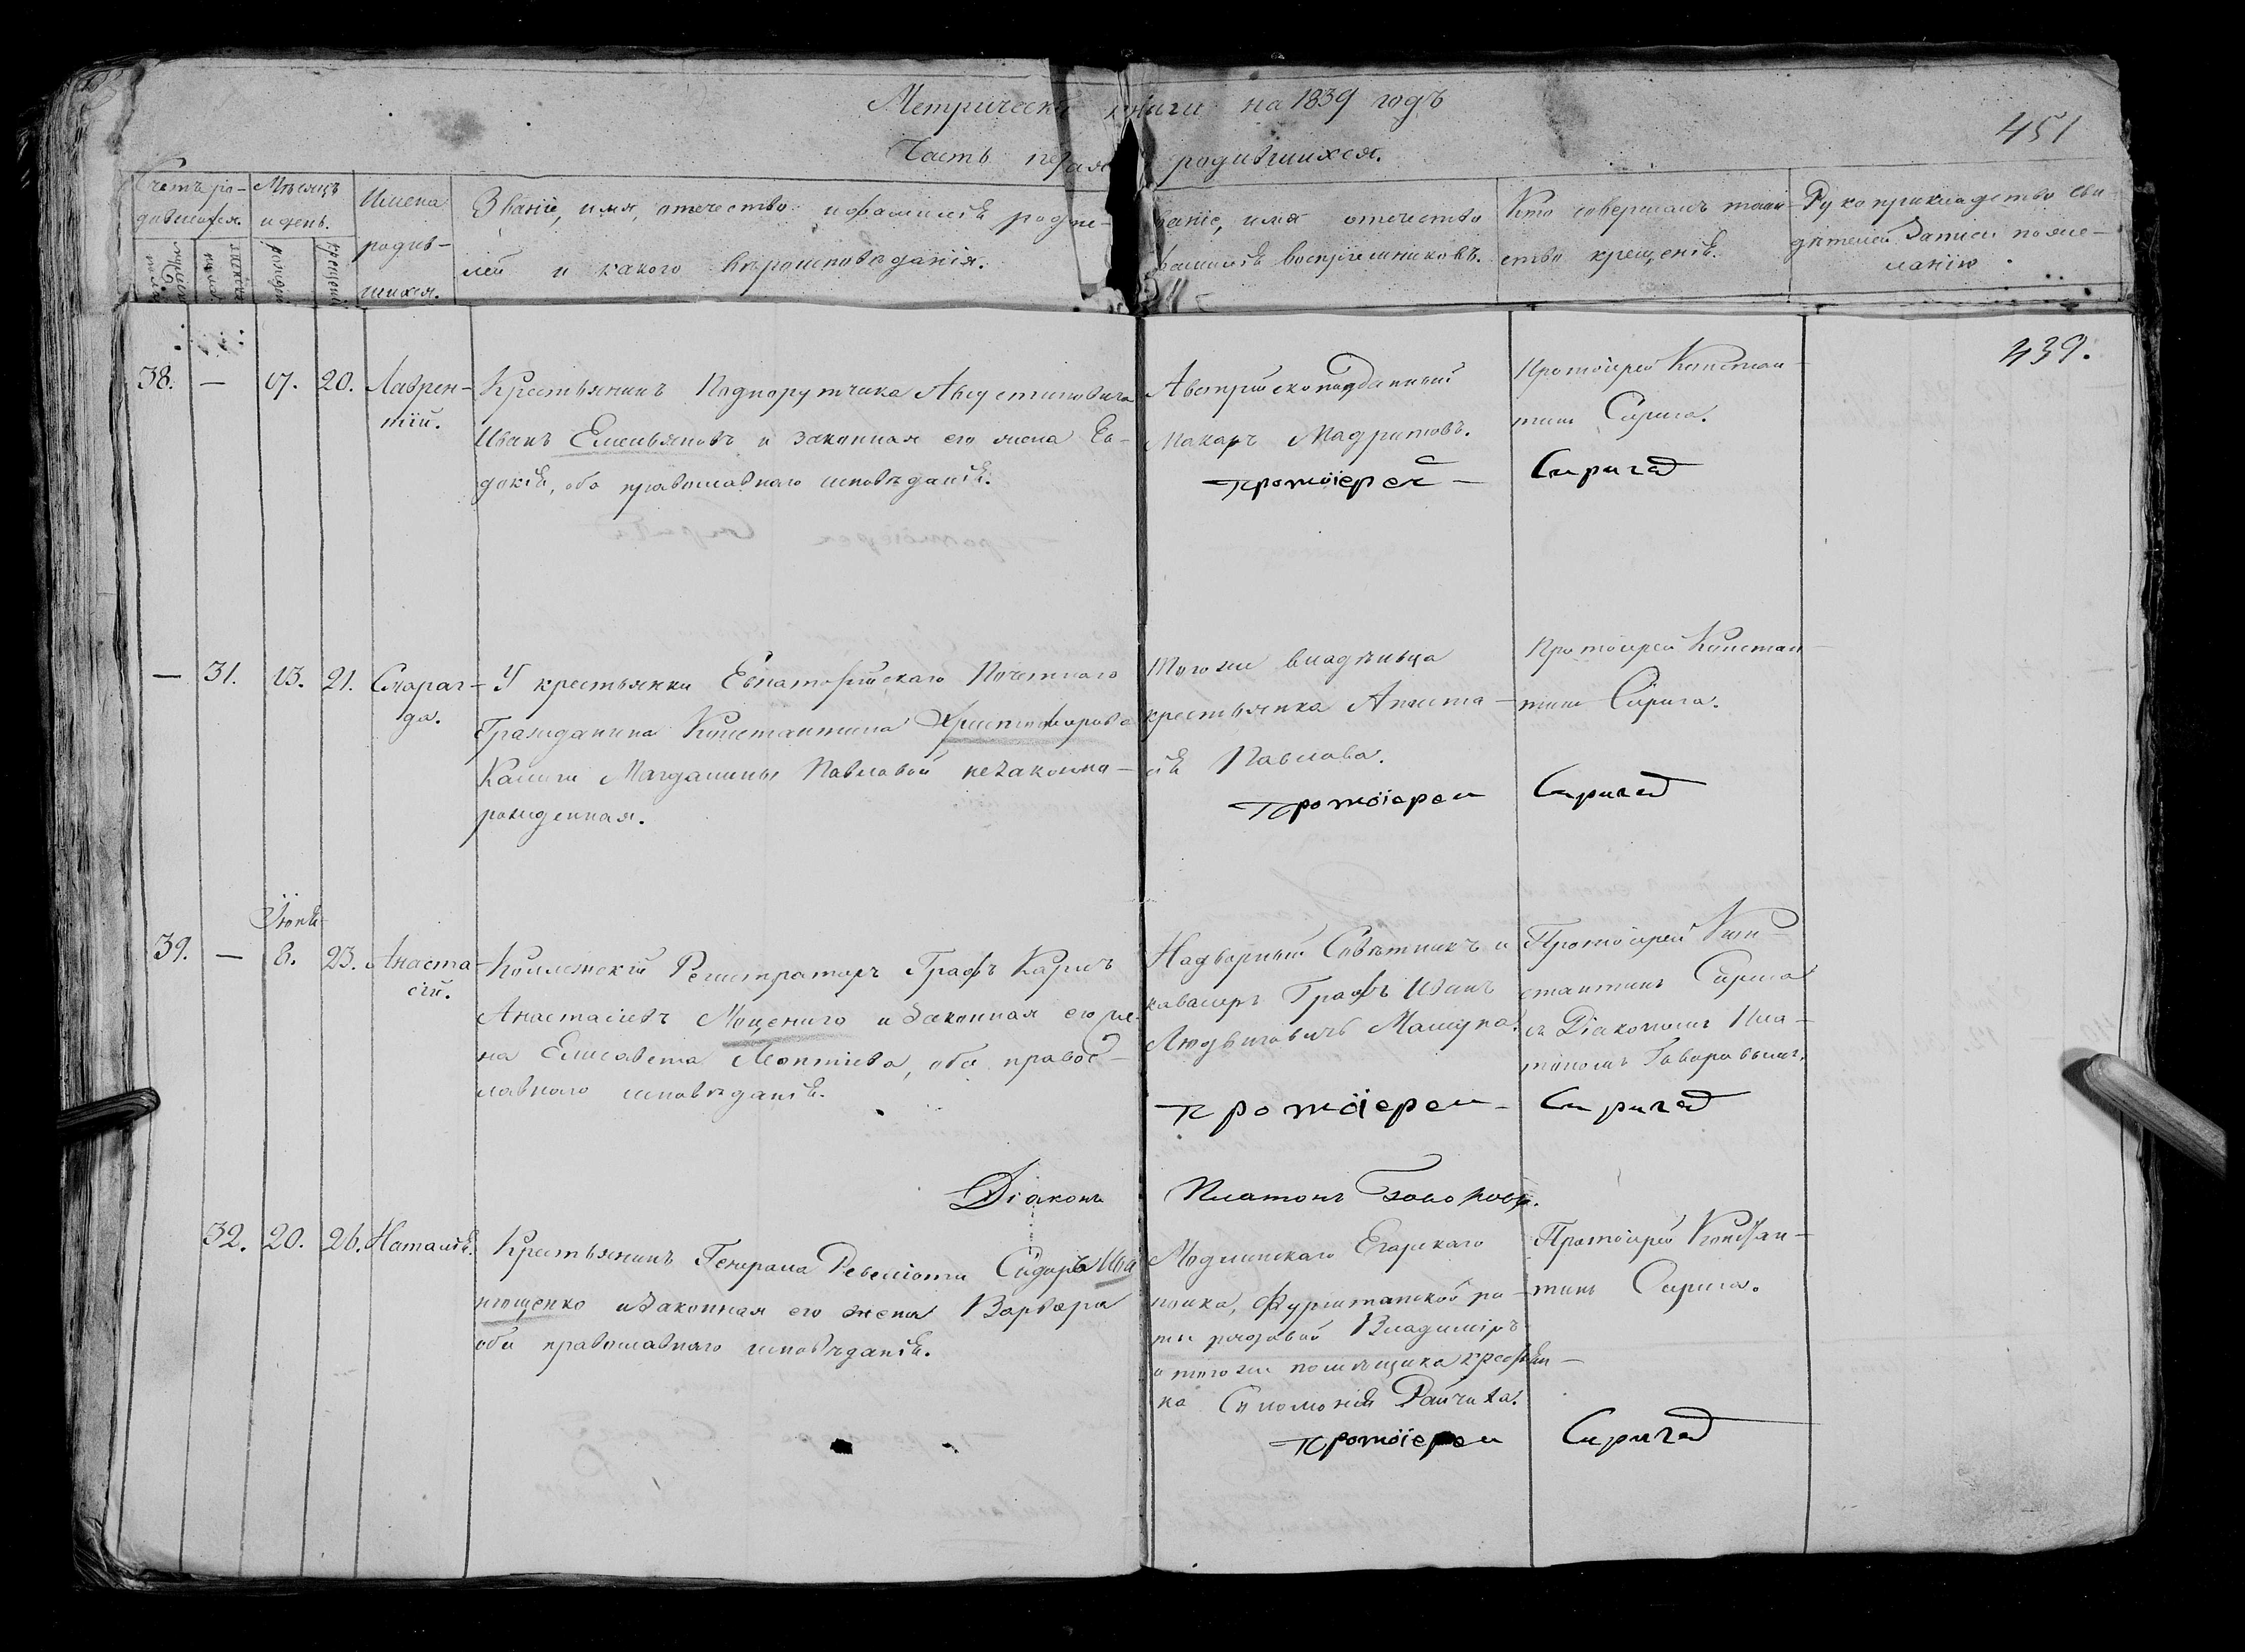 Метрической книги на 1839 годъ
451
Часть первая родившихся.
Счетъ ро-
дившихся.
Мѣсяцъ
и день.
Имена
родив-
шихся.
Званіе, имя, отечество и фамилія родите-
лей и какого вѣроисповѣданія.
званіе, имя отечество
фамилія воспріемниковъ.
Кто совершалъ таин-
ство крещенія.
Рукоприкладство сви-
дѣтелей записи по же-
ланію
439.
38. — 17. 20. Лаврен-
тій.
Крестьянинъ Подпорутчика Августиновича
Иванъ Емельяновъ и законная его жена Ев-
докія, оба православнаго исповѣданія.
Австрійскоподданный
Макаръ Мадритовъ.
Протоіерей Констан-
тинъ Сирига.
Протоіерей — Сирига
— 31. 13. 21. Смараг-
да.
У крестьянки Евпаторійскаго Почетнаго
Гражданина Константина Христофорова
Магдалины Павловой незаконно-
рожденная.
Того же владѣльца
крестьянка Анаста-
сія Павлова.
Протоіерей Констан-
тинъ Сирига.
Протоіерей Сирига
Іюня
39. — 8. 23. Анаста-
сій.
Коллежскій Регистраторъ Графъ Карлъ
Анастасіевъ Моцениго и законная его же-
на Елисавета, оба правос-
лавнаго исповѣданія.
Надворный Совѣтникъ и
кавалеръ Графъ Иванъ
Людвиговичъ
Протоіерей Кон-
стантинъ Сирига
съ Діакономъ Пла-
тономъ
Протоіерей — Сирига
Діаконъ Платонъ
32. 20. 26. Наталія.
Крестьянинъ Генерала Ревеліоти Сидоръ Ива
нющенко и законная его жена Варвара
оба православнаго исповѣданія.
Модлинскаго Егерскаго
полка, Фурштатской ро-
ты рядовой Владиміръ
и того же помѣщика крестьян-
ка Соломонія
Протоіерей Констан-
тинъ Сирига.
Протоіерей Сирига